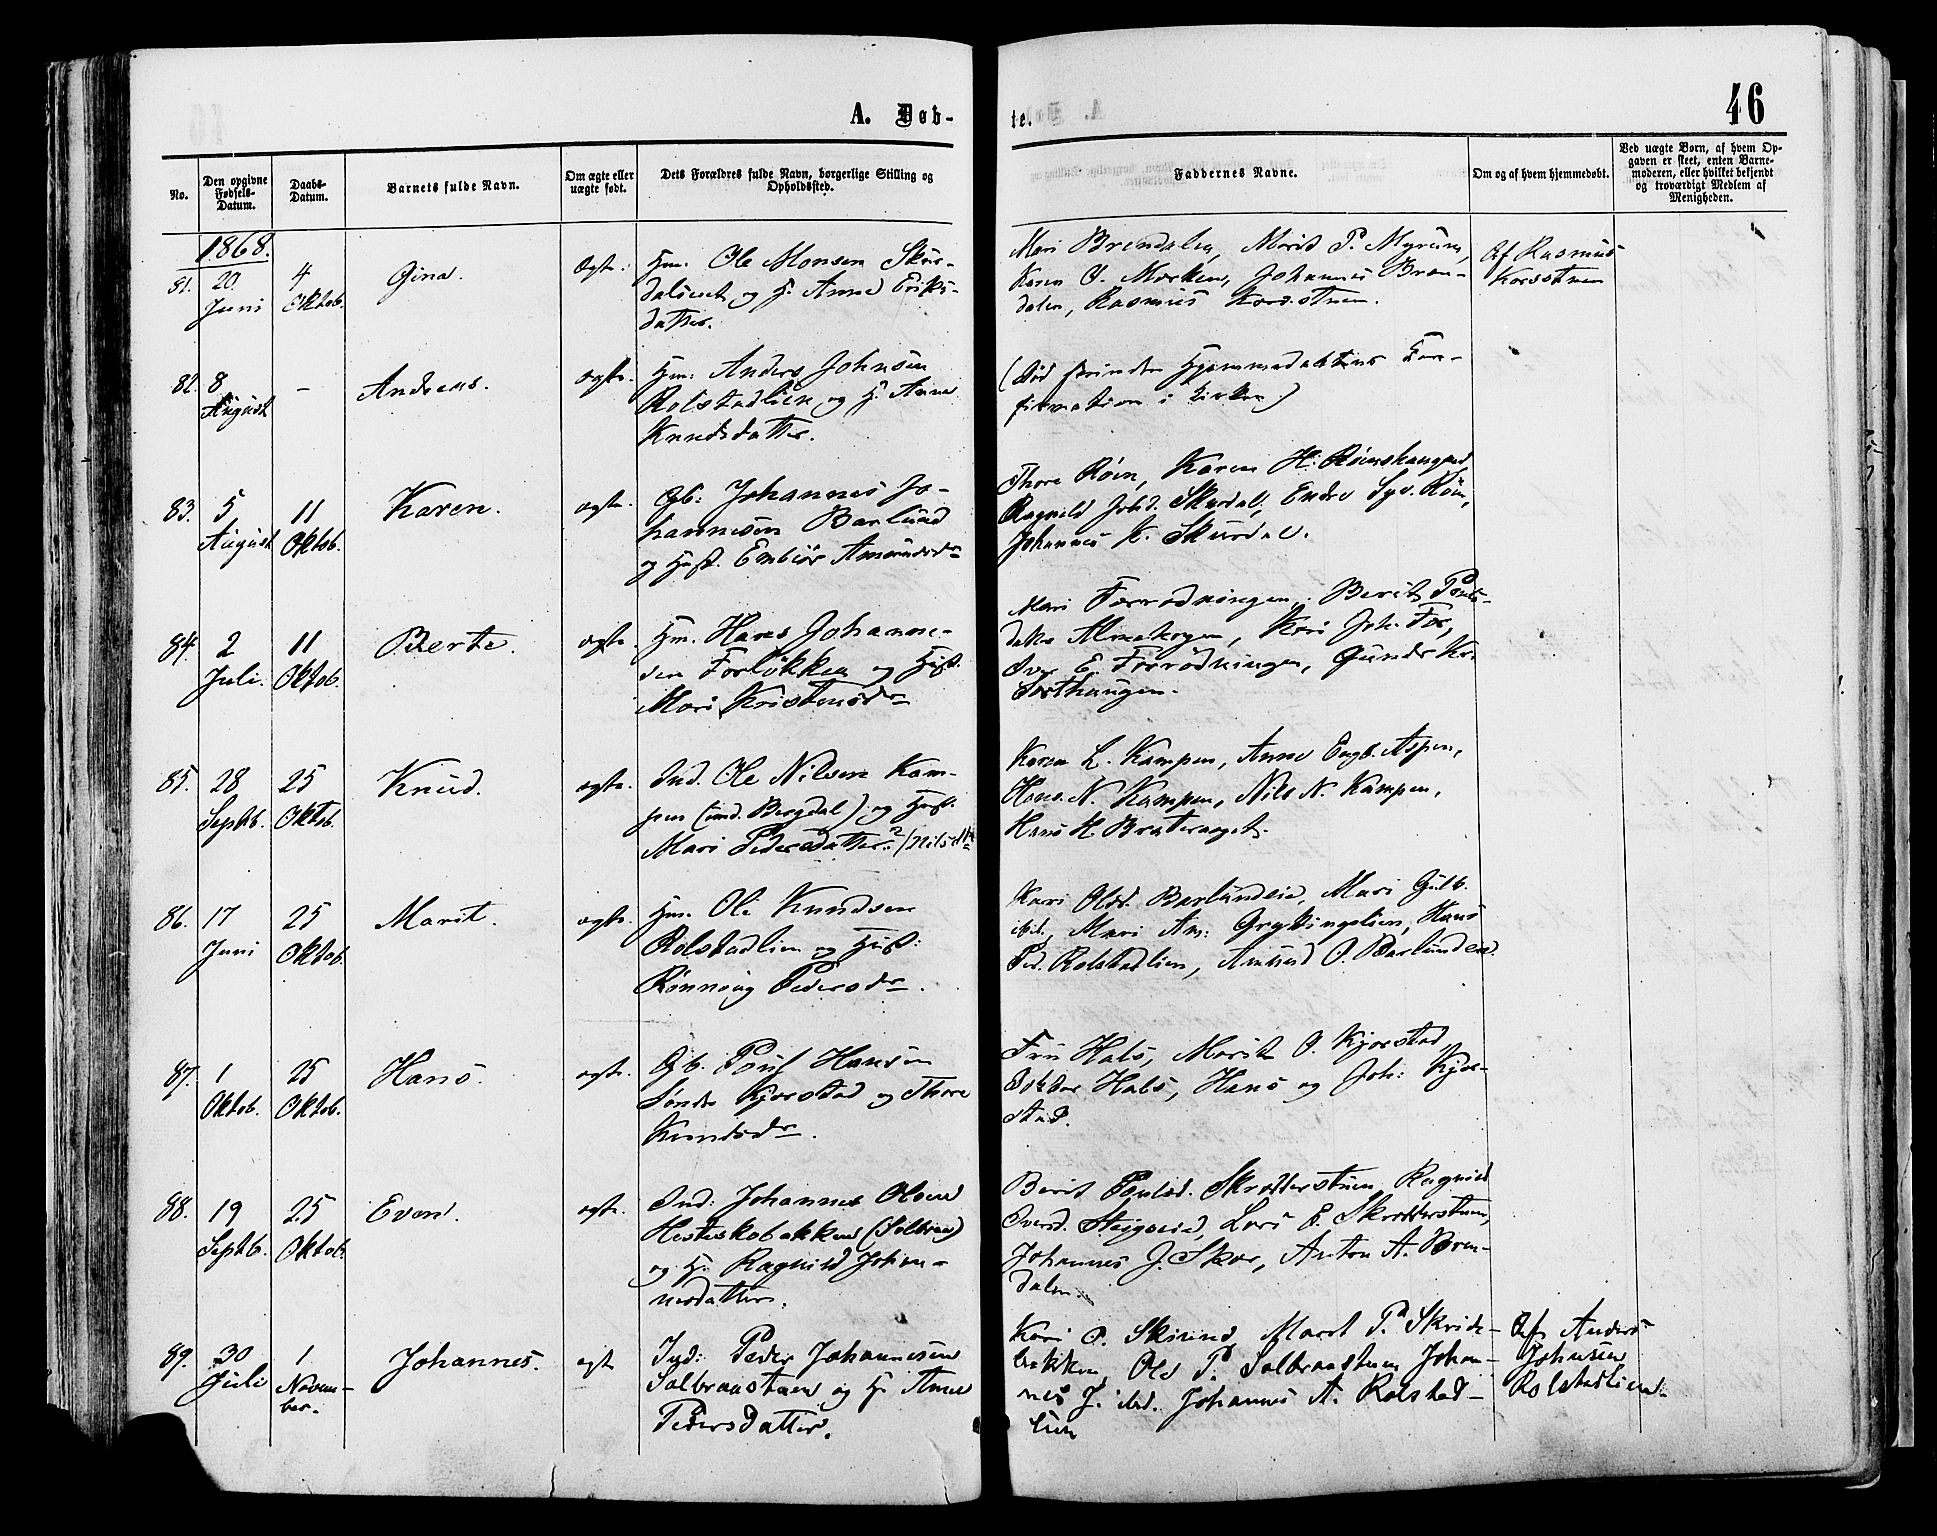 A. Døb-
te.
46
No.
Den opgivne Fødsels-Datum.
Daabs-Datum.
Barnets fulde Navn.
Om ægte eller uægte født.
Dets Forældres fulde Navn, borgerlige Stilling og Opholdssted.
Faddernes Navne.
Om og af hvem hjemmedøbt.
Ved uægte Børn, af hvem Op-
gaven er skeet, enten Barne-
moderen, eller hvilket bekjendt
og troværdigt Medlem af
Menigheden.
1868.
81. 20 Juni 4 Oktob. Gina. ægte.
Hm. Ole Monsen Skur-
dalseiet og H. Anne Eriks-
datter.
Mari Brendalen, Marit P. Myrum,
Karen O. Morken, Johannes Bræn-
dalen, Rasmus Korsstuen.
Af Rasmus
Korsstuen
82. 8 August - Andreas. ægte.
Hm. Anders Johnsen
Rolstadlien og H. Anne
Knudsdatter.
(Død forinden Hjemmedaabens Con-
firmation i Kirken)
83. 5 August 11 Oktob. Karen. ægte.
Gb. Johannes Jo-
hannesen Barlund
og Hust. Embiør Amundsdr
Thore Røen, Karen H. Røenshaugen
Ragnild Johd. Skurdal, Endre Syv. Røen,
Johannes K. Skurdal.
84. 2 Juli. 11 Oktob. Berte. ægte.
Hm. Hans Johanne-
sen Forløkken og Hust.
Mari Kristensdr
Mari Forrødningen, Berit Pouls-
datter, Kari Joh. For,
Iver E. Forrødningen, Gunder Kr.
85. 28 Septb. 25 Oktob. Knud. ægte.
Ind. Ole Nilsen Kam-
pen (ind. Bergdal) og Hust.
Mari Pedersdatter? /Nilsdtr
Karen L. Kampen, Anne Engb. Aspen,
Hans N. Kampen, Nils N. Kampen,
Hans H. Bratteraget.
86. 17 Juni 25 Oktob. Marit. ægte.
Hm. Ole Knudsen
Rolstadlien og Hust:
Rønnaug Pedersdr.
Kari Olsd. Barlundeie, Mari Gulb.
ibd., Mari Am. Grytingslien, Hans
Ped. Rolstadlien, Amund O. Barlundeie.
87. 1 Oktob. 25 Oktob. Hans. ægte.
Gb. Poul Hansen
Søndre Kjorstad og Thore
Knudsdr.
Fru Hals, Marit O. Kjorstad,
Doktor Hals, Hans og Joh: Kjor-
stad.
88. 19 Septb. 25 Oktob. Even. ægte.
Ind: Johannes Olsen
Hesteskobakken (Solbraa)
og H. Ragnild Johan-
nesdatter.
Berit Poulsd. Skrædderstuen, Ragnild
Iversd. Steigeeie, Lars E. Skrædderstuen,
Johannes J. Skar, Anton A. Bren-
dalen.
89. 30 Juli 1 Novem-
ber. Johannes. ægte
Ind: Peder Johannesen
Solbraastuen og H. Anne
Pedersdatter.
Kari O. Skurud, Marit Pd Skride-
bakken, Ole P. Solbraastuen, Johan-
nes J. ibd. Johannes A. Rolstad-
lien
Af Anders
Johnsen
Rolstadlien.